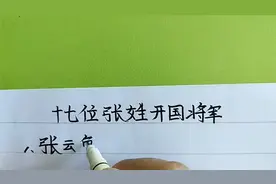 十七位张姓开国将军
1、张云